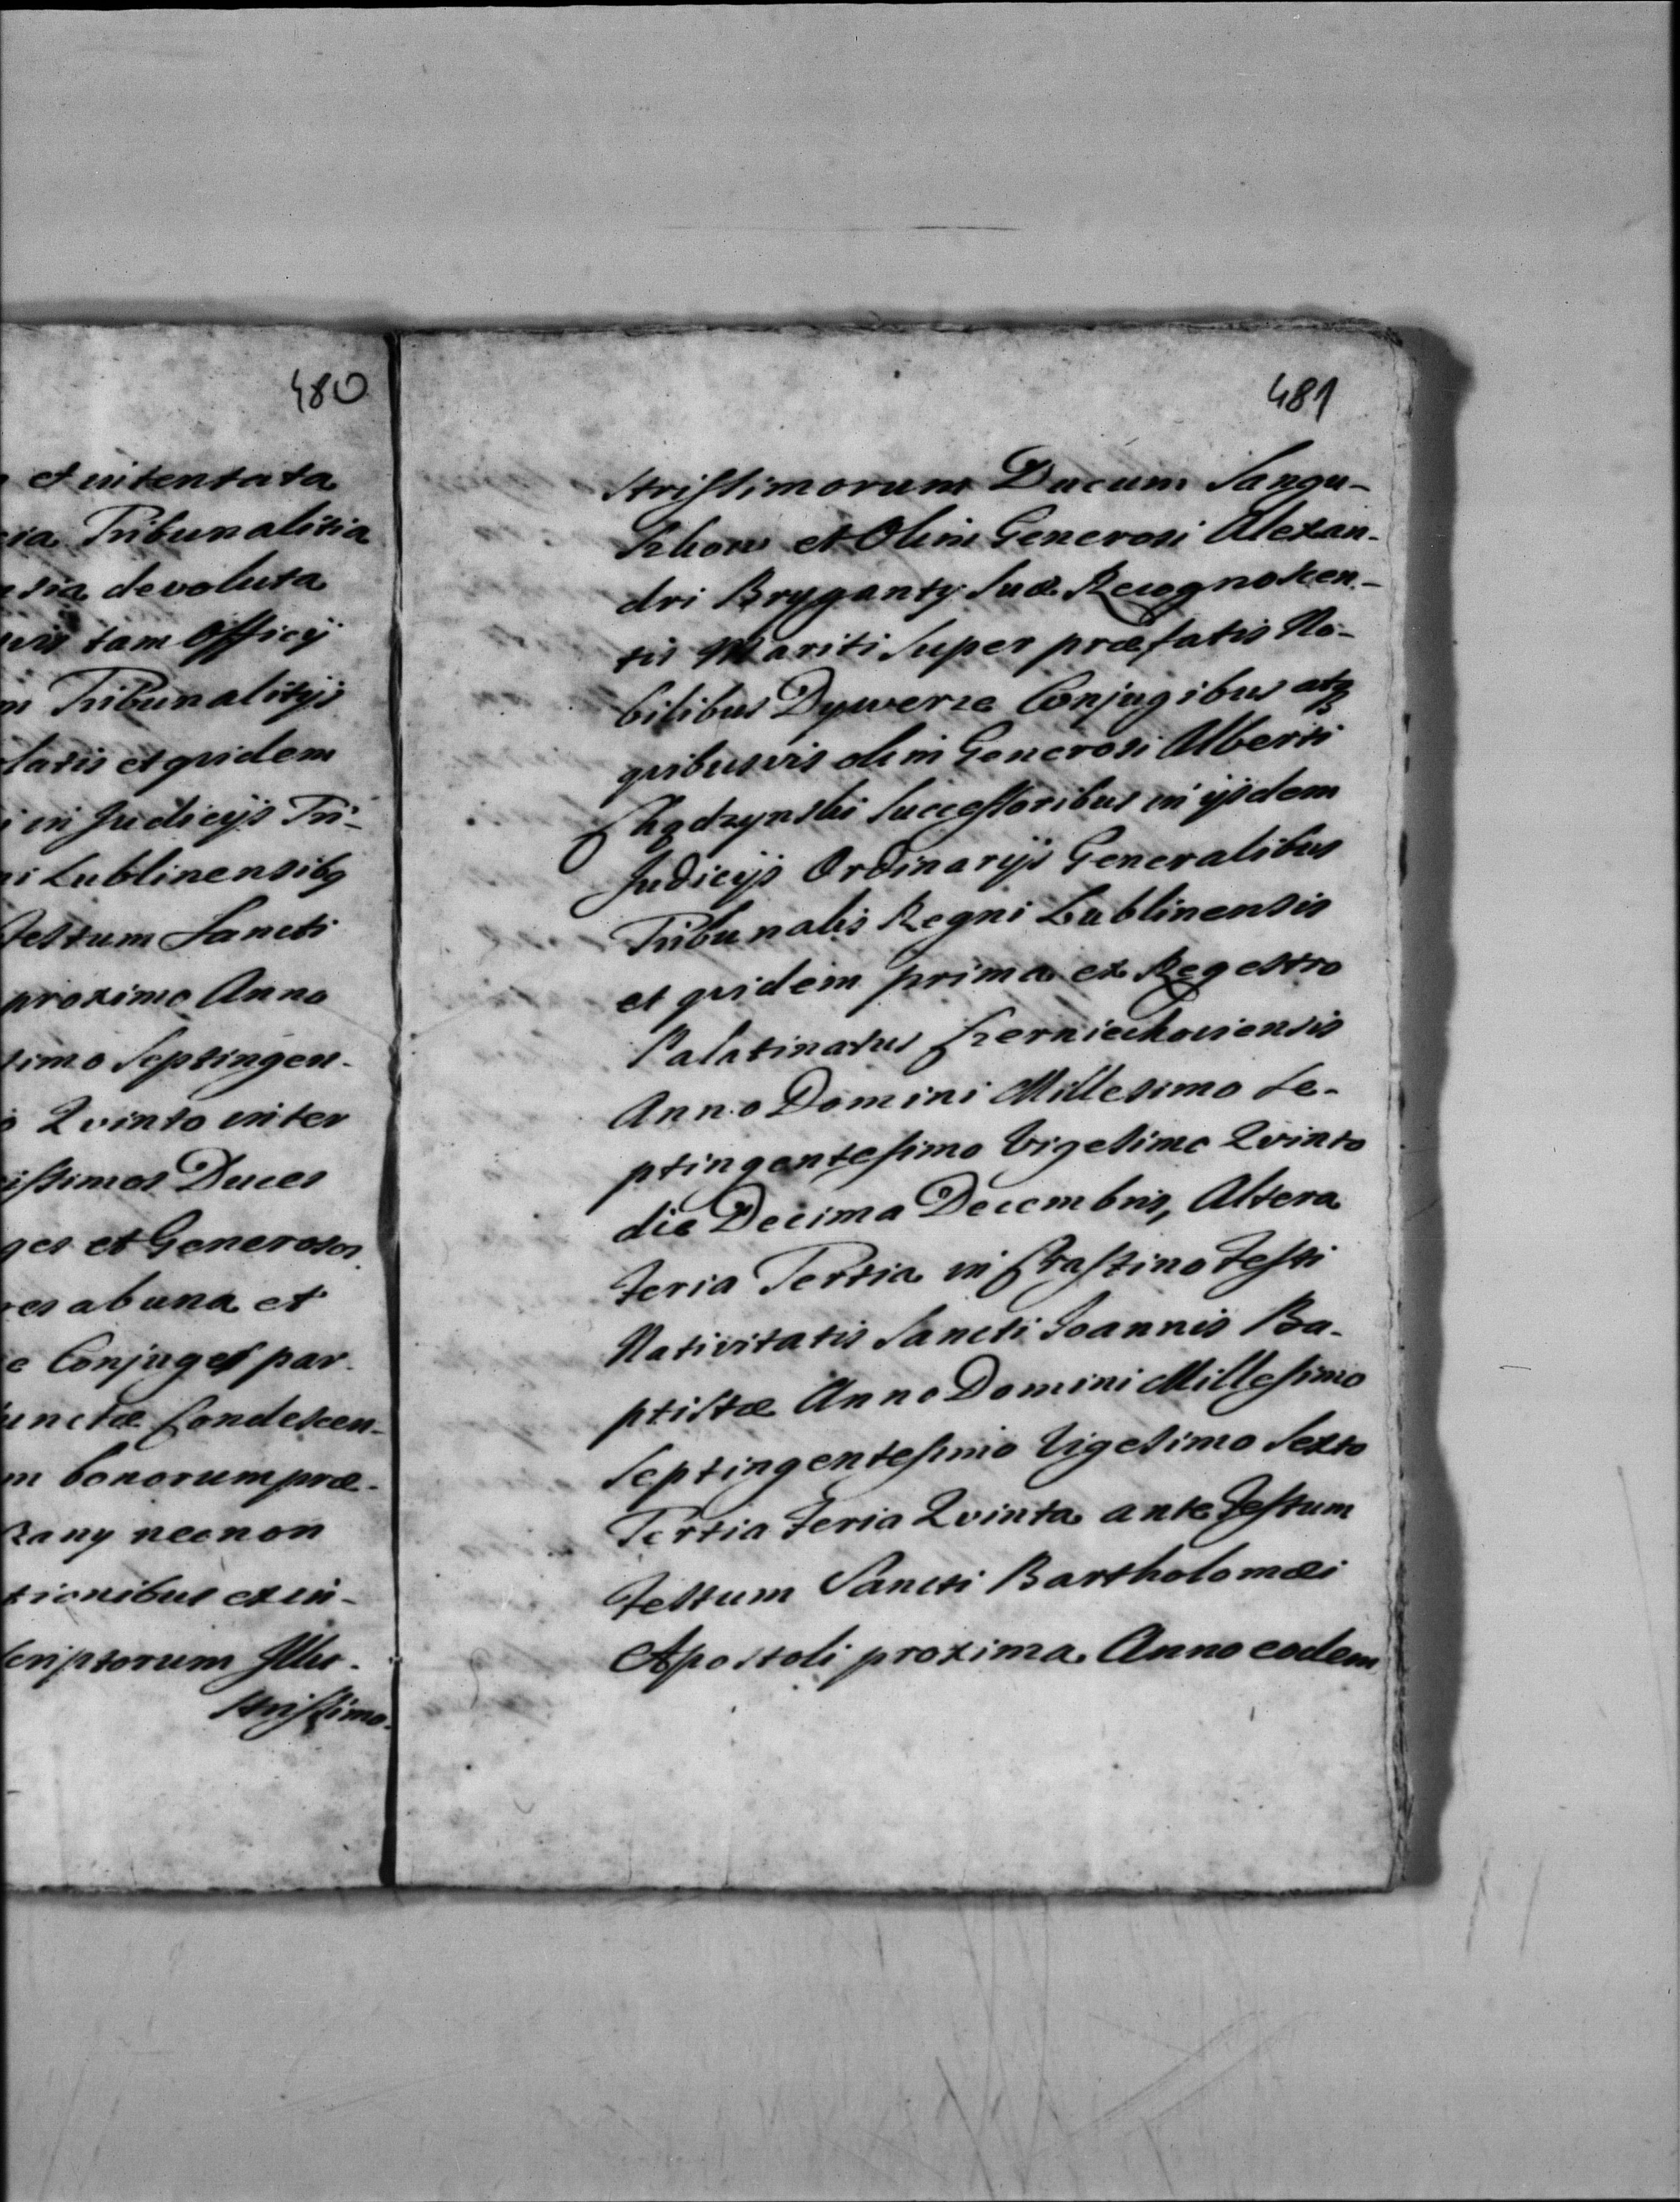 480
et intentata
Tribunalitia
devoluta
tam Officÿ
Tribunalitÿs
latis et qvidem
in Judicÿs Tri-
Lublinensibq
Festum Sancti
proxime Anno
Septingen-
Qvinto inter
Duces
et Generosos
ab una et
Conjuges par-
Condescen-
bonorum præ-
necnon
ex in-
Illu-
strissimo-
481
strissimorum Ducum Sangu-
szkow et Olim Generosi Alexan-
dri Brÿganty Suæ Recognoscen-
tis Mariti Super præfatis No-
bilibus Dywerze Conjugibus atq
qvibusvis olim Generosi Alberti
Chądzynski Successoribus in ÿsdem
Judicÿs Ordinarÿs Generalibus
Tribunalis Regni Lublinensis
et qvidem prima ex Regestro
Palatinatus Czerniechoviensis
Anno Domini Millesimo Se-
ptingentesimo Vigesimo Qvinto
die Decima Decembris, Altera
Feria Tertia in Crastino Festi
Nativitatis Sancti Joannis Ba-
ptistæ Anno Domini Millesimo
Septingentesimo Vigesimo Sexto
Tertia Feria Qvinta ante Festum
Festum Sancti Bartholomæi
Apostoli proxima Anno eodem